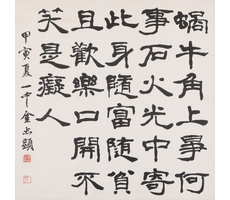 蝸牛角上爭何
事石火光中寄
此身隨富隨貧
且歡樂口開不
笑是癡人
甲寅夏一中金忠顯